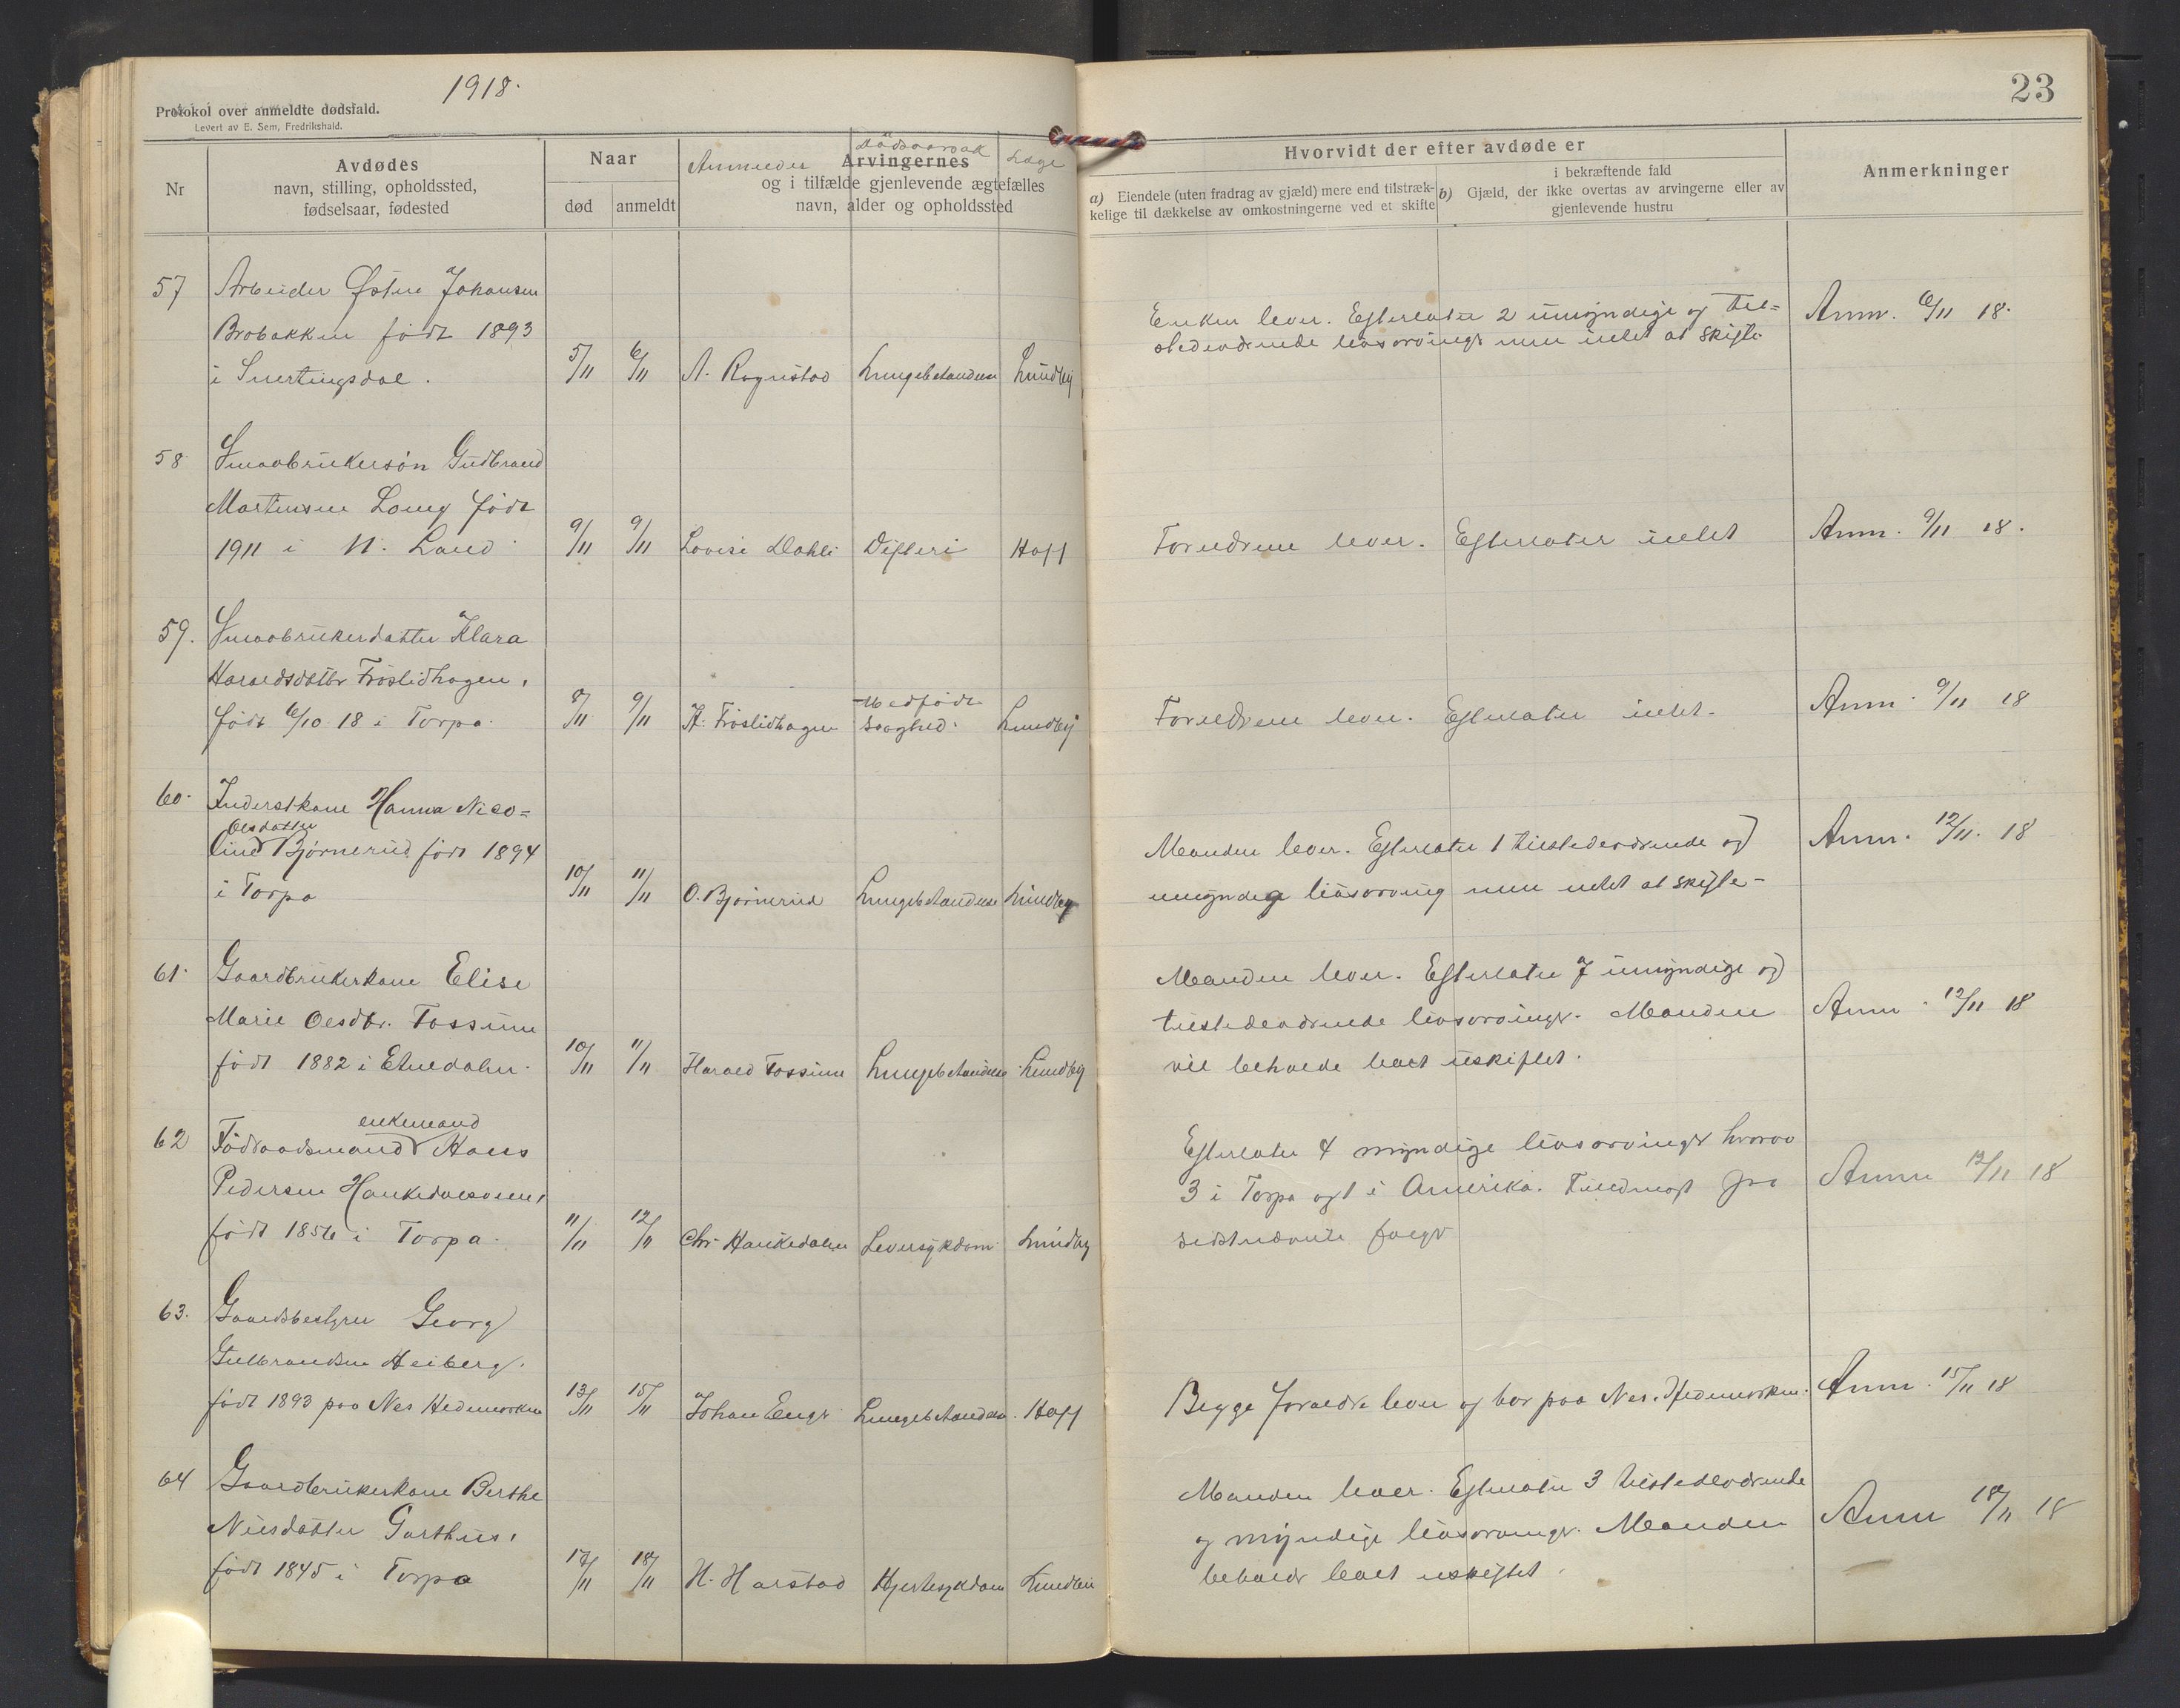 1918.
23
Protokol over anmeldte dødsfald.
Levert av E. Sem, Fredrikshald.
Nr
Avdødes
navn, stilling, opholdssted,
fødselsaar, fødested
Naar
død
anmeldt
Anmelder
Dødsaarsak
Læge
Arvingernes
og i tilfælde gjenlevende ægtefælles
navn, alder og opholdssted
Hvorvidt der efter avdøde er
a) Eiendele (uten fradrag av gjæld) mere end tilstræk-
kelige til dækkelse av omkostningerne ved et skifte
i bekræftende fald
b) Gjæld, der ikke overtas av arvingerne eller av
gjenlevende hustru
Anmerkninger
57
Arbeider Østen Johansen
Brobakken født 1893
i Snertingsdal.
5/11 6/11 A. Rognstad Lungebetændelse Lundby
Enken lever. Efterlater 2 umyndige og til-
stedeværende livsarvinger men intet at skifte.
Anm. 6/11 18.
58
Smaabrukersøn Gudbrand
Martinsen Lomg født
1911 i N. Land
9/11 9/11 Lovise Dahli Difteri Hoff
Forældrene lever. Efterlater intet
Anm. 9/11 18.
59.
Smaabrukerdatter Klara
Haraldsdatter Frøslidhagen,
født 6/10 18 i Torpa.
8/11 9/11 H. Frøslidhagen Medfødt
svaghed. Lundby
Forældrene lever. Efterlater intet.
Anm. 9/11 18
60.
Inderstkone Hanna Nico-
Olsdatter
line Bjørnerud født 1894
i Torpa
10/11 11/11 O. Bjørnerud Lungebetændelse Lundby
Manden lever. Efterlater 1 tilstedeværende og
umyndig livsarving men intet at skifte-
Anm. 12/11. 18
61.
Gaardbrukerkone Elise
Marie Olsdtr. Tossum
født 1882 i Etnedalen.
10/11 11/11 Harald Tossum Lungebetændelse Lundby
Manden lever. Efterlater 7 umyndige og
tilstedeværende livsarvinger. Manden
vil beholde boet uskiftet.
Anm. 12/11 18
62
enkemand
Føderaadsmand Hans
Pedersen
født 1856 i Torpa.
11/11 12/11 Chr. Haukedalen Leversykdom Lundby
Efterlater 4 myndige livsarvinger hvorav
3 i Torpa og 1 i Amerika. Fuldmagt fra
sidstnævnte følger
Anm 12/11 18
63.
Gaardsbestyrer Georg
Gulbrandsen Heiberg.
født 1893 paa Nes Hedemarken
13/11 15/11 Johan Enger Lungebetændelse. Hoff
Begge forældre lever og bor paa Nes. Hedemarken.
Anm. 15/11 18
64
Gaardbrukerkone Berthe
Nilsdatter Garthus,
født 1845 i Torpa
17/11 18/11 H. Harstad Hjertesykdom Lundby
Manden lever. Efterlater 3 tilstedeværende
og myndige livsarvinger. Manden
beholder boet uskiftet.
Anm 18/11 18